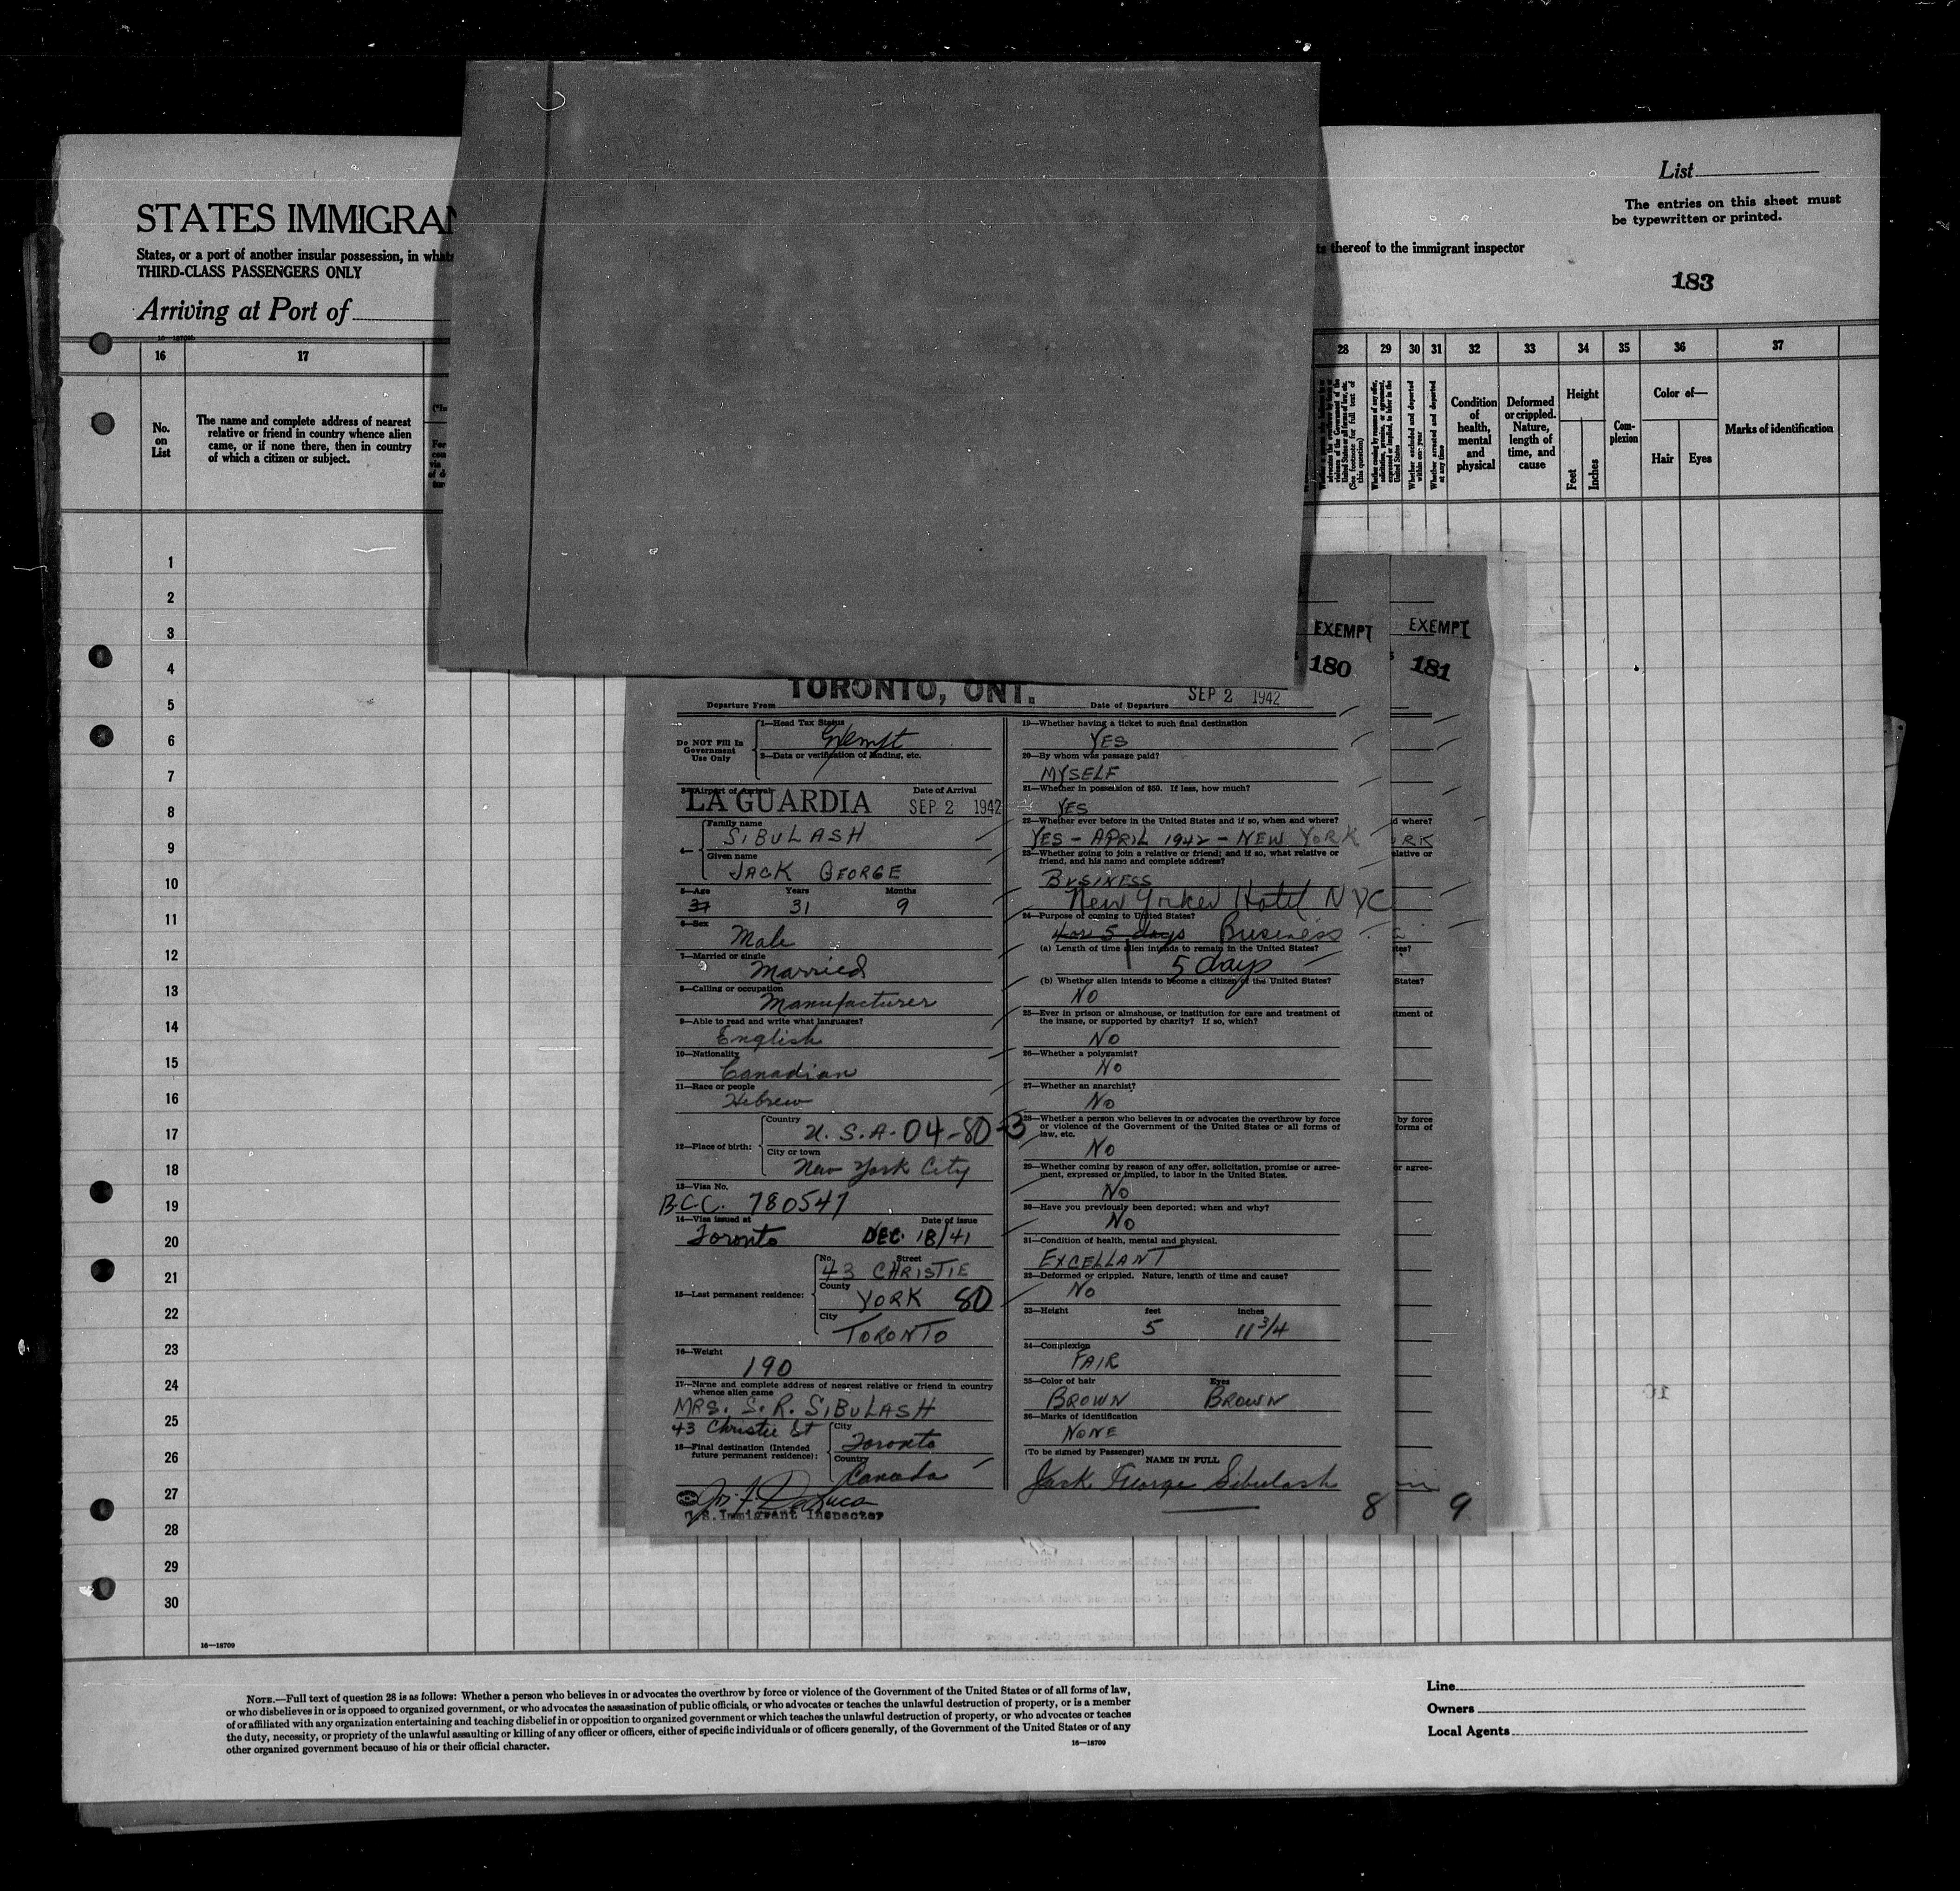 List
The entries on this sheet must
be typewritten or printed.
STATES IMMIGRA
States, or a port of another insular possession, in
THIRD-CLASS PASSENGERS ONLY
thereof to the immigrant inspector
183
Arriving at Port of
16 17 28 29 30 31 32 33 34 35 36 37
No.
on
List
The name and complete address of nearest
relative or friend in country whence alien
came, or if none there, then in country
of which a citizen or subject.
Whether coming by reason of any offer,
solicitation, promise, or agreement,
expressed or implied, to labor in the
United States
Whether excluded and deported
within one year
Whether arrested and deported
at any time
Condition
of
health,
mental
and
physical
Deformed
or crippled.
Nature,
length of
time, and
cause
Height
Feet
Inches
Com-
plexion
Color of—
Hair
Eyes
Marks of identification
1
2
3
4
5
6
7
8
9
10
11
12
13
14
15
16
17
18
19
20
21
22
23
24
25
26
27
28
29
30
16—18709
EXEMPT EXEMPT
180 181
TORONTO, ONT.
SEP 2 1942
Departure From
Date of Departure
Do NOT Fill In
Government
Use Only
1—Head Tax Status
Exempt
2—Data or verification of landing, etc.
3—Airport of Arrival
Date of Arrival
LA GUARDIA SEP 2 1942
4—
Family name
SIBULASH
Given name
JACK GEORGE
5—Age Years Months
31 9
6—Sex
Male
7—Married or single
Married
8—Calling or occupation
Manufacturer
9—Able to read and write what languages?
English
10—Nationality
Canadian
11—Race or people
Hebrew
12—Place of birth:
Country
U.S.A. 04-80-3
City or town
New York City
13—Visa No.
B.C.C. 780547
14—Visa issued at Date of issue
Toronto DEC. 18/41
15—Last permanent residence:
No. Street
43 CHRISTIE
County
YORK 80
City
TORONTO
16—Weight
190
17—Name and complete address of nearest relative or friend in country
whence alien came
MRS. S. R. SIBULASH
43 Christie St
18—Final destination (Intended
future permanent residence):
City
Toronto
Country
Canada
Jos. F. DeLuca
U.S. Immigrant Inspector
19—Whether having a ticket to such final destination
YES
20—By whom was passage paid?
MYSELF
21—Whether in possession of $50. If less, how much?
YES
22—Whether ever before in the United States and if so, when and where?
YES - APRIL 1942 - NEW YORK
23—Whether going to join a relative or friend; and if so, what relative or
friend, and his name and complete address?
BUSINESS
New Yorker Hotel NYC
24—Purpose of coming to United States?
5 days Business
(a) Length of time alien intends to remain in the United States?
5 days
(b) Whether alien intends to become a citizen of the United States?
NO
25—Ever in prison or almshouse, or institution for care and treatment of
the insane, or supported by charity? If so, which?
NO
26—Whether a polygamist?
NO
27—Whether an anarchist?
NO
28—Whether a person who believes in or advocates the overthrow by force
or violence of the Government of the United States or all forms of
law, etc.
NO
29—Whether coming by reason of any offer, solicitation, promise or agree-
ment, expressed or implied, to labor in the United States.
NO
30—Have you previously been deported; when and why?
NO
31—Condition of health, mental and physical.
EXCELLANT
32—Deformed or crippled. Nature, length of time and cause?
NO
33—Height feet inches
5 11 3/4
34—Complexion
FAIR
35—Color of hair Eyes
BROWN BROWN
36—Marks of identification
NONE
(To be signed by Passenger)
NAME IN FULL
Jack George Sibulash
8
d where?
ORK
elative or
States?
tment of
by force
forms of
or agree-
9
NOTE.—Full text of question 28 is as follows: Whether a person who believes in or advocates the overthrow by force or violence of the Government of the United States or of all forms of law,
or who disbelieves in or is opposed to organized government, or who advocates the assassination of public officials, or who advocates or teaches the unlawful destruction of property, or is a member
of or affiliated with any organization entertaining and teaching disbelief in or opposition to organized government or which teaches the unlawful destruction of property, or who advocates or teaches
the duty, necessity, or propriety of the unlawful assaulting or killing of any officer or officers, either of specific individuals or of officers generally, of the Government of the United States or of any
other organized government because of his or their official character.
16—18709
Line
Owners
Local Agents